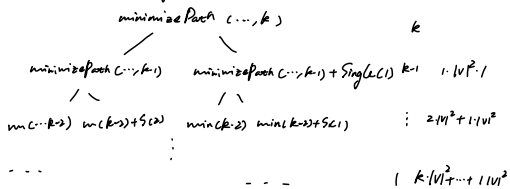 minimizePath (..., k) k
minimizePath(..., k-1) minimizePath(..., k-1) + Single(1) k-1 1·|V|²·1
m(...k-2) m(k-2)+S(2) min(k-2) min(k-2)+S(1) ⋮ 2·|V|²+1·|V|²
⋮
- - - - - - 1 k·|V|²+...+1·|V|²